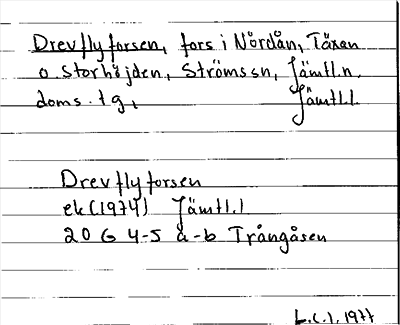 Drevflyforsen, fors i Nördån, Täxan
o. Storhöjden, Ströms sn, Jämtl.n.
doms. tg, Jämtl.l.
Drevflyforsen
ek (1974) Jämtl.l
20 G 4-5 a-b Trångåsen
L.C.J. 1977